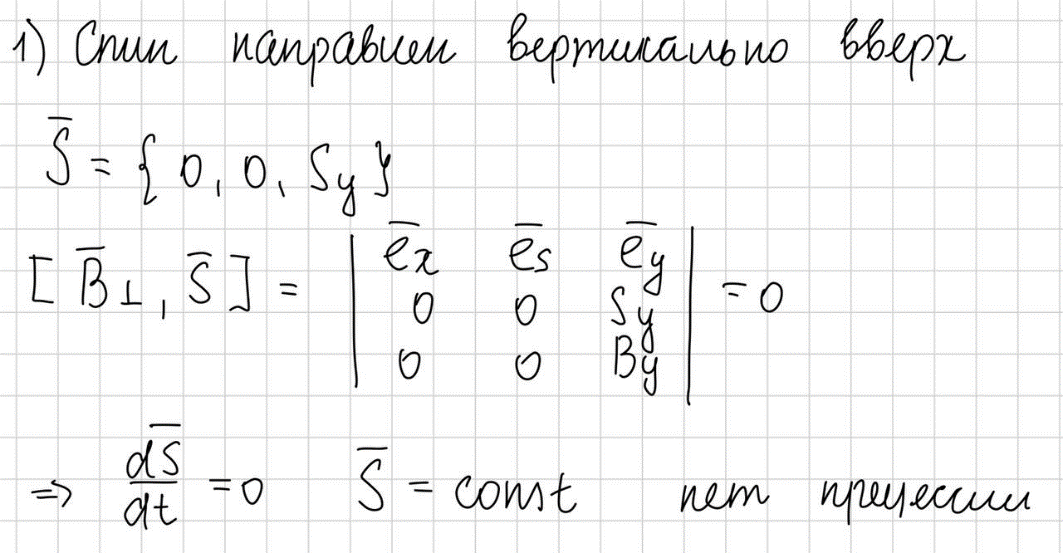 1) Спин направлен вертикально вверх
S̄ = { 0, 0, Sy }
[ B̄⊥, S̄ ] = | ēx ēs ēy | = 0
0 0 Sy
0 0 By
=> dS̄/dt = 0 S̄ = const нет прецессии